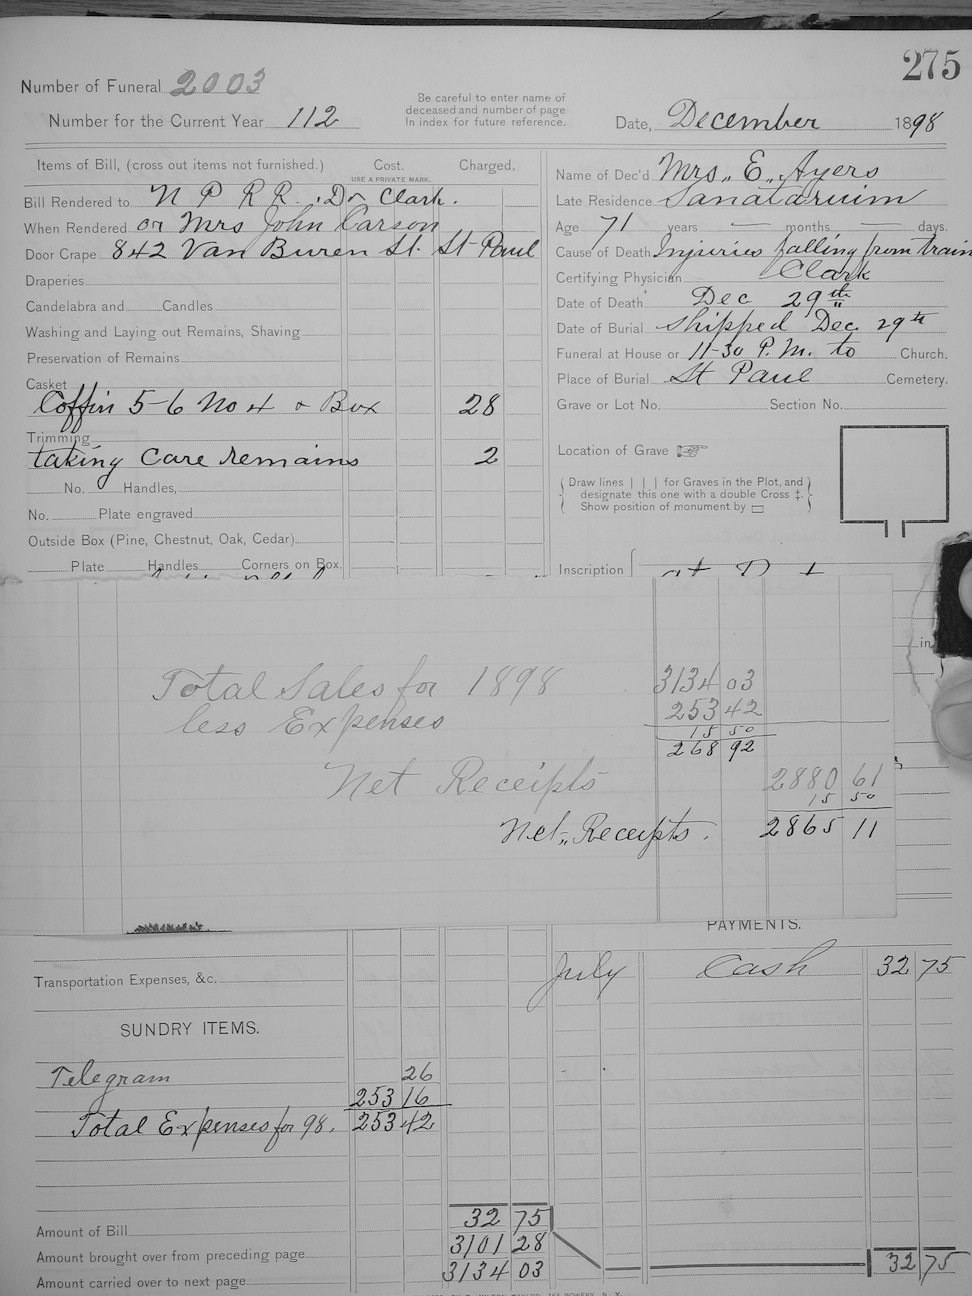 275
Number of Funeral 2003
Number for the Current Year 112
Be careful to enter name of
deceased and number of page
In index for future reference.
Date, December 1898
Items of Bill, (cross out items not furnished.) Cost. Charged.
USE A PRIVATE MARK.
Bill Rendered to N P R R. Dr Clark.
When Rendered or Mrs John Carson
Door Crape 842 Van Buren St. St Paul
Draperies
Candelabra and Candles
Washing and Laying out Remains, Shaving
Preservation of Remains
Casket
Coffin 5-6 No 4 & Box 28
Trimming
taking Care remains 2
No. Handles,
No. Plate engraved
Outside Box (Pine, Chestnut, Oak, Cedar)
Plate Handles Corners on Box.
Name of Dec'd Mrs. E. Ayers
Late Residence Sanataruim
Age 71 years — months — days.
Cause of Death Injuries falling from train
Certifying Physician Clark
Date of Death Dec 29th
Date of Burial Shipped Dec. 29th
Funeral at House or 11-30 P.M. to Church.
Place of Burial St Paul Cemetery.
Grave or Lot No. Section No.
Location of Grave
Draw lines | | | for Graves in the Plot, and
designate this one with a double Cross ‡.
Show position of monument by
Inscription
in
Total Sales for 1898 3134 03
less Expenses 253 42
15 50
268 92
Net Receipts 2880 61
15 50
Net,, Receipts. 2865 11
PAYMENTS.
Transportation Expenses, &c.
July Cash 32 75
SUNDRY ITEMS.
Telegram 26
253 16
Total Expenses for 98. 253 42
Amount of Bill 32 75
Amount brought over from preceding page 3101 28
32 75
Amount carried over to next page 3134 03